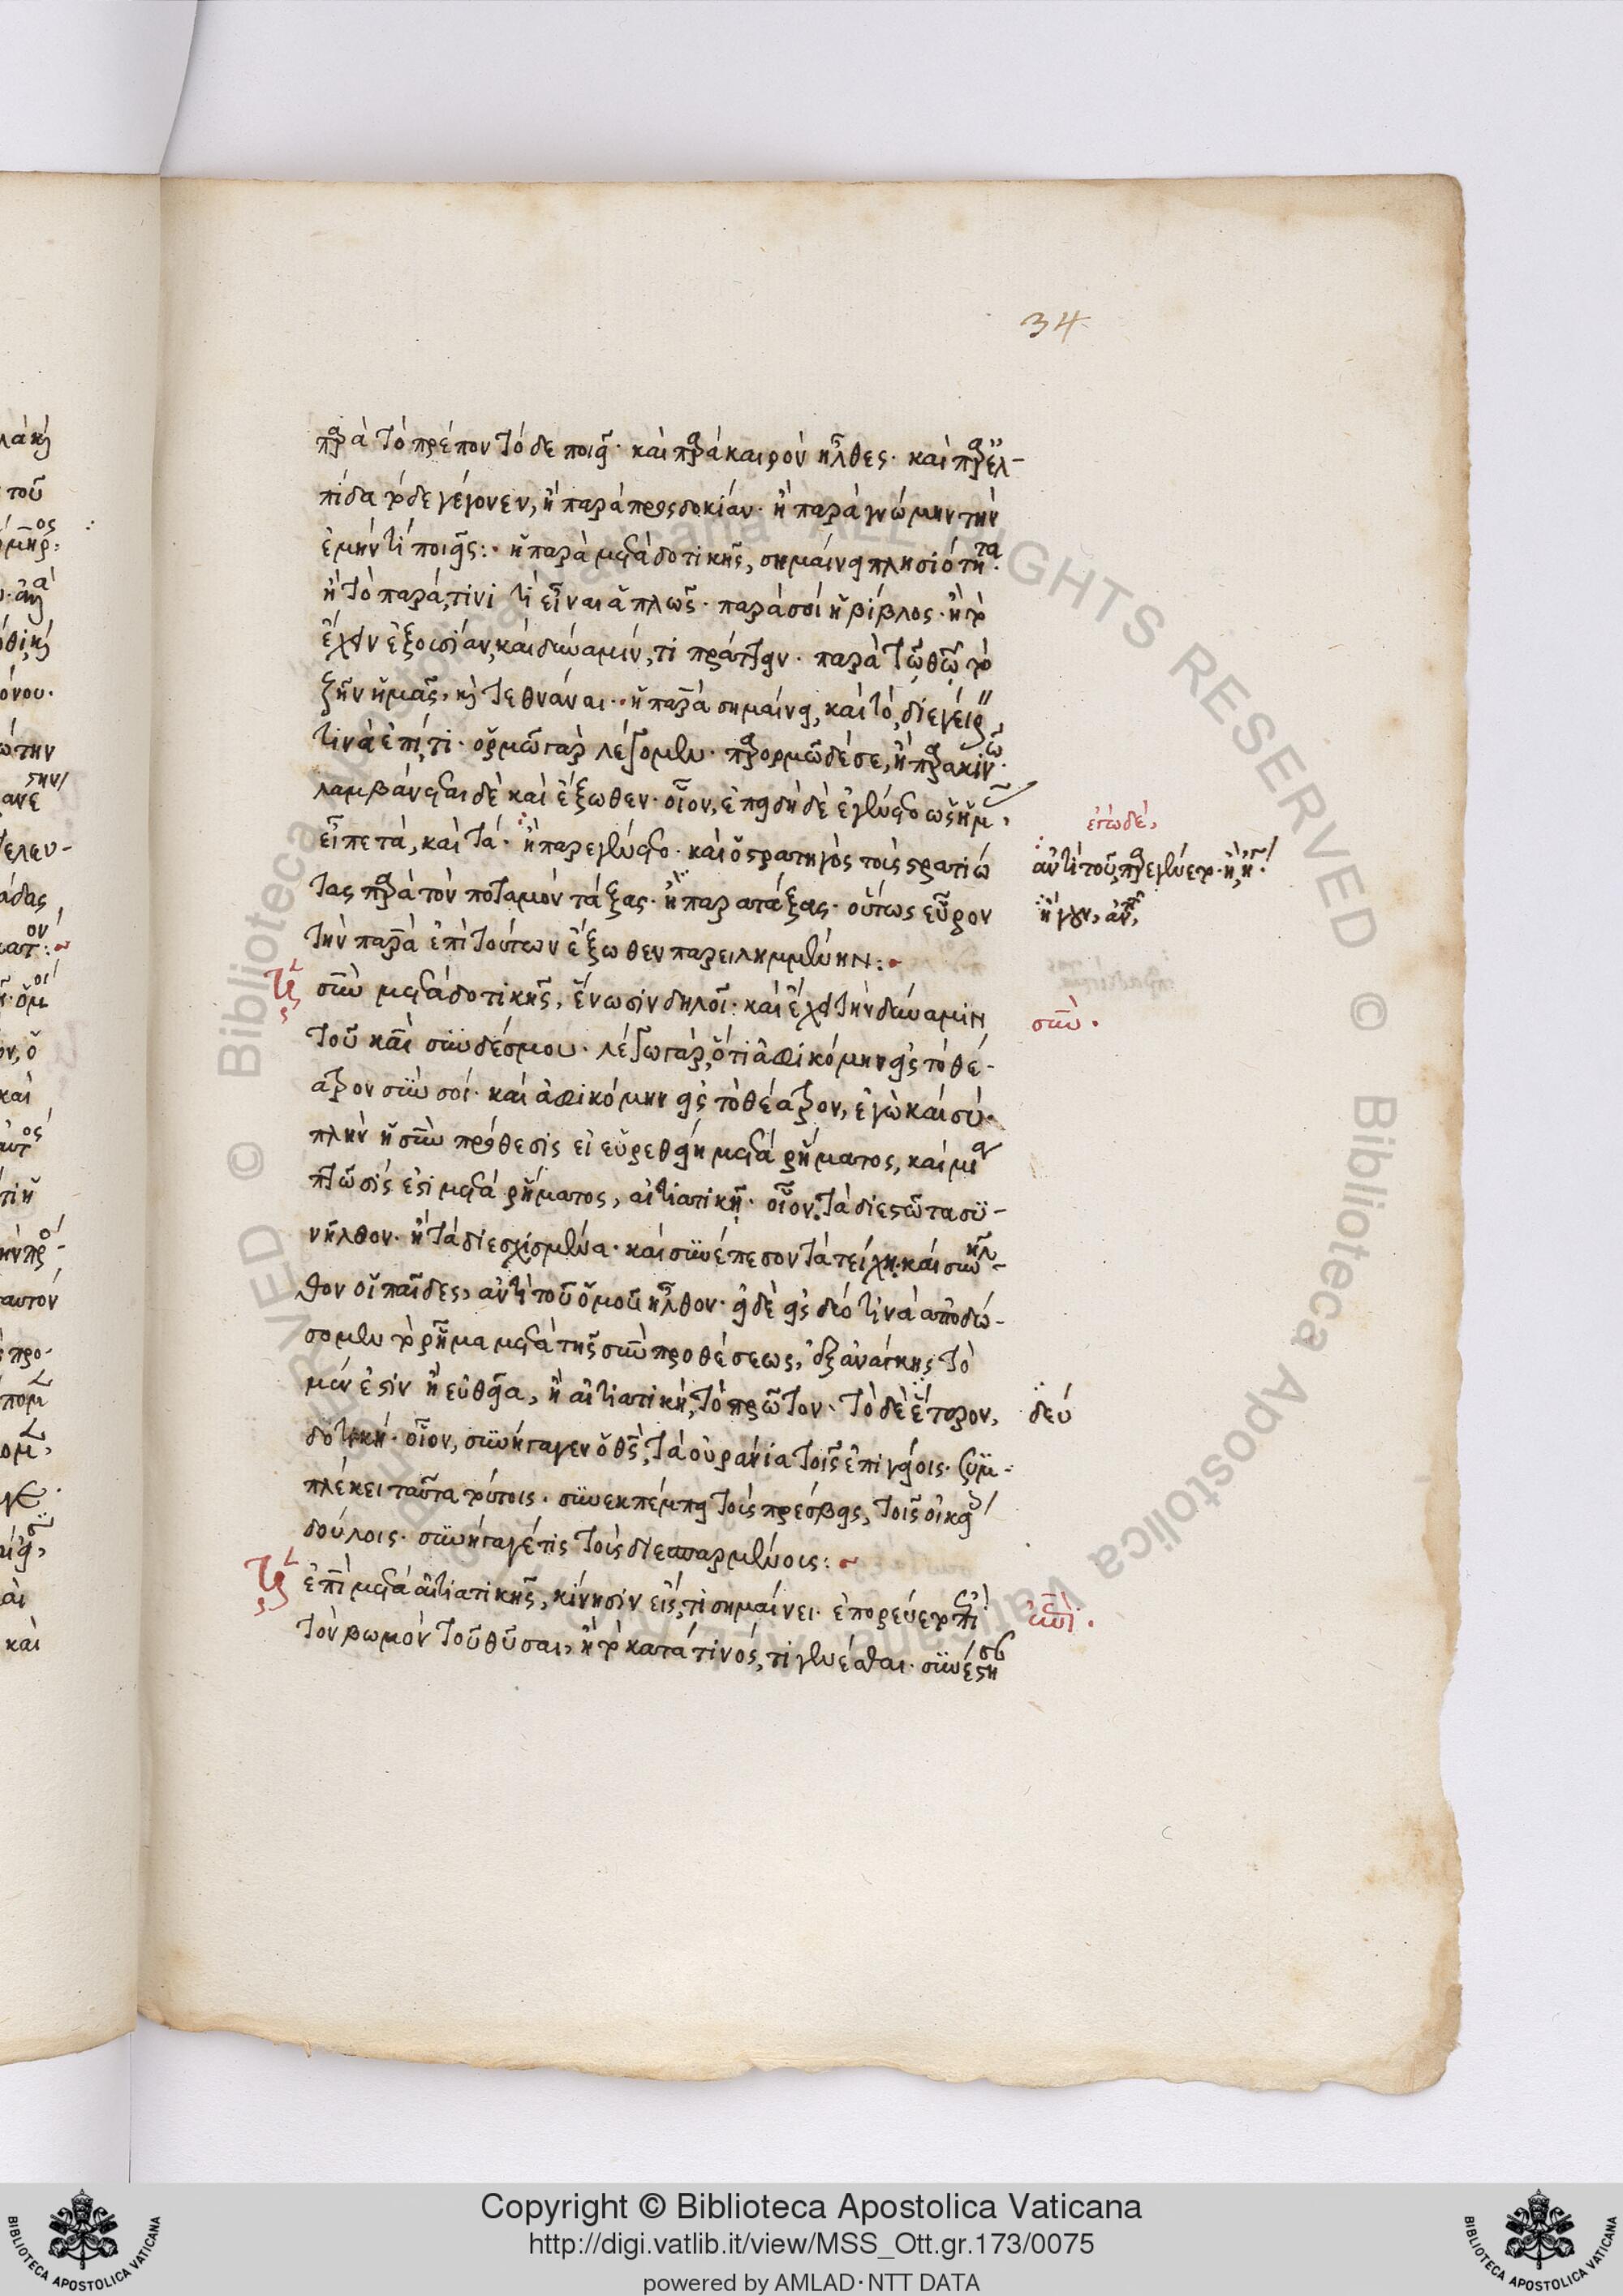 34
παρὰ τὸ πρέπον τόδε ποιεῖ· καὶ παρὰ καιρὸν ἦλθες· καὶ παρ' ἐλ-
πίδα τόδε γέγονεν, ἢ παρὰ προσδοκίαν· ἢ παρὰ γνώμην τὴν
ἐμήν τί ποιεῖς:· ἡ παρὰ μετὰ δοτικῆς, σημαίνει πλησιότητα·
ἢ τὸ παρά τινι τὶ εἶναι ἁπλῶς· παρὰ σοὶ ἡ βίβλος· ἢ τὸ
ἔχειν ἐξουσίαν, καὶ δύναμιν, τι πράττειν· παρὰ τῷ θεῷ τὸ
ζῆν ἡμᾶς, καὶ τεθνάναι· ἡ παρὰ σημαίνει, καὶ τὸ, διεγείρειν
τινὰ ἐπί τι· ὁρμῶ γὰρ λέγομεν· παρορμῶ δέ σε, ἢ παρακινῶ·
λαμβάνεται δὲ καὶ ἔξωθεν· οἷον, ἐπειδὴ δὲ ἐγένετο ὡς ἡμῖν
εἴπετά, καὶ τά· ἢ παρεγένετο· καὶ ὁ στρατηγὸς τοὺς στρατιώ
τας παρὰ τὸν ποταμὸν τάξας· ἢ παρατάξας· οὕτως εὗρον
τὴν παρὰ ἐπὶ τούτων ἔξωθεν παρειλημμένην:
σὺν μετὰ δοτικῆς, ἕνωσιν δηλοῖ· καὶ ἔχει τὴν δύναμιν
τοῦ καὶ συνδέσμου· λέγω γὰρ, ὅτι ἀφικόμην εἰς τὸ θέ-
ατρον σὺν σοί· καὶ ἀφικόμην εἰς τὸ θέατρον, ἐγὼ καὶ σύ·
πλὴν ἡ σὺν πρόθεσις εἰ εὑρεθείη μετὰ ῥήματος, καὶ μία
πτῶσίς ἐστι μετὰ ῥήματος, αἰτιατική· οἷον, τὰ διεστῶτα συ-
νῆλθον· ἢ τὰ διεσχισμένα· καὶ συνέπεσον τὰ τείχη· καὶ συνῆλ-
θον οἱ παῖδες, ἀντὶ τοῦ ὁμοῦ ἦλθον· εἰ δὲ εἰς δύο τινὰ ἀποδώ-
σομεν τὸ ῥῆμα μετὰ τῆς σὺν προθέσεως, ἐξ ἀνάγκης τὸ
μέν ἐστιν ἢ εὐθεῖα, ἢ αἰτιατικὴ, τὸ πρῶτον· τὸ δὲ ἕτερον,
δοτική· οἷον, συνήγαγεν ὁ θεὸς, τὰ οὐράνια τοῖς ἐπιγείοις· συμ-
πλέκει ταῦτα τούτοις· συνεκπέμπει τοὺς πρέσβεις, τοῖς οἰκείοις
δούλοις· συνήγαγέ τις τοὺς διεσπαρμένους:
ἐπὶ μετὰ αἰτιατικῆς, κίνησιν εἴς τι σημαίνει· ἐπορεύετο ἐπὶ
τὸν βωμὸν τοῦ θῦσαι, ἢ τὸ κατά τινός, τι γενέσθαι· συνέστη
ἀντὶ τοῦ, παρεγένετο·
σὺν·
δεύ
ἐπὶ·
Copyright © Biblioteca Apostolica Vaticana
http://digi.vatlib.it/view/MSS_Ott.gr.173/0075
powered by AMLAD·NTT DATA
BIBLIOTECA APOSTOLICA VATICANA
BIBLIOTECA APOSTOLICA VATICANA